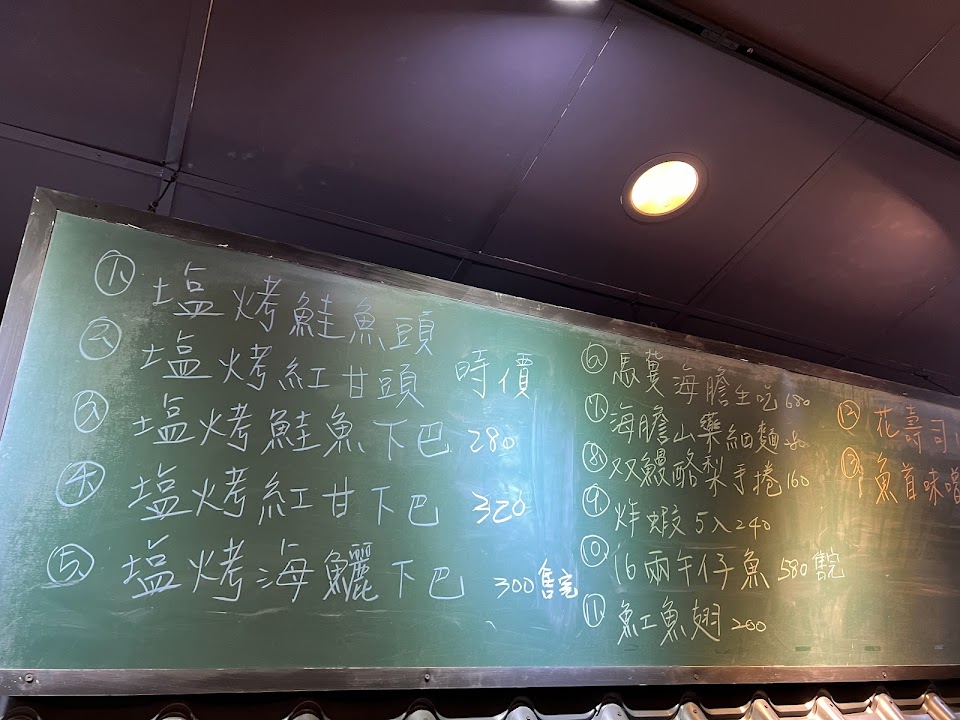 ① 塩烤鮭魚頭
② 塩烤紅甘頭 時價
③ 塩烤鮭魚下巴 280
④ 塩烤紅甘下巴 320
⑤ 塩烤海鱺下巴 300售完
⑥ 馬糞海膽生吃 680
⑦ 海膽山藥細麵
⑧ 双鰻酪梨手捲 160
⑨ 炸蝦5入240
⑩ 16兩午仔魚 580售完
⑪ 魟魚翅 200
⑫ 花壽司
⑬ 魚首味噌